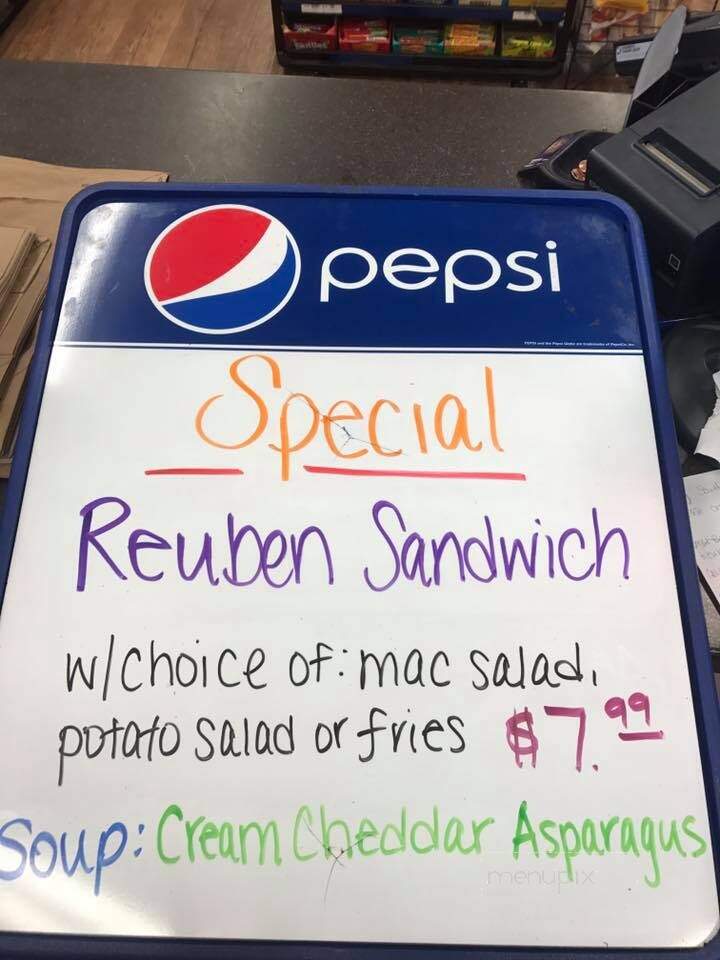 Skittles
pepsi
Special
Reuben Sandwich
w/choice of: mac salad,
potato salad or fries $7.99
Soup: Cream Cheddar Asparagus
menupix